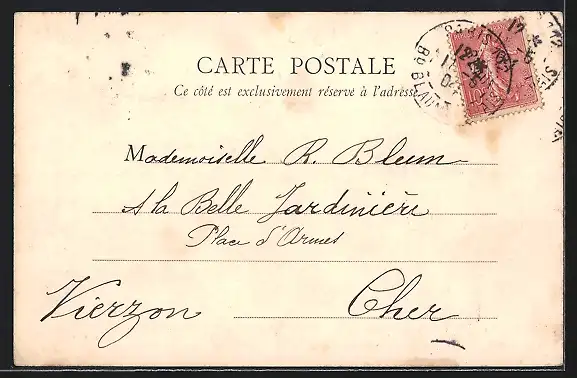 CARTE POSTALE
Ce côté est exclusivement réservé à l'adresse
Mademoiselle R. Blum
A la Belle Jardinière
Place d'Armes
Vierzon Cher